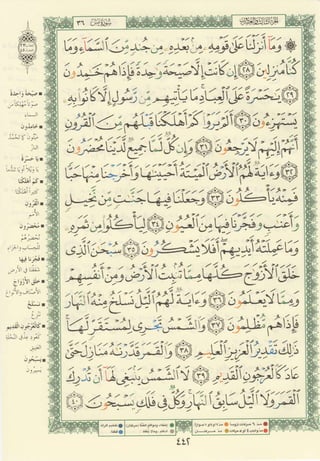 سورة يس ٣٦
۞ وَمَآ أَنزَلْنَا عَلَىٰ قَوْمِهِۦ مِنۢ بَعْدِهِۦ مِن جُندٍ مِّنَ ٱلسَّمَآءِ وَمَا
كُنَّا مُنزِلِينَ ٢٨ إِن كَانَتْ إِلَّا صَيْحَةً وَٰحِدَةً فَإِذَا هُمْ خَٰمِدُونَ
٢٩ يَٰحَسْرَةً عَلَى ٱلْعِبَادِ مَا يَأْتِيهِم مِّن رَّسُولٍ إِلَّا كَانُوا۟ بِهِۦ
يَسْتَهْزِءُونَ ٣٠ أَلَمْ يَرَوْا۟ كَمْ أَهْلَكْنَا قَبْلَهُم مِّنَ ٱلْقُرُونِ
أَنَّهُمْ إِلَيْهِمْ لَا يَرْجِعُونَ ٣١ وَإِن كُلٌّ لَّمَّا جَمِيعٌ لَّدَيْنَا مُحْضَرُونَ
٣٢ وَءَايَةٌ لَّهُمُ ٱلْأَرْضُ ٱلْمَيْتَةُ أَحْيَيْنَٰهَا وَأَخْرَجْنَا مِنْهَا حَبًّا
فَمِنْهُ يَأْكُلُونَ ٣٣ وَجَعَلْنَا فِيهَا جَنَّٰتٍ مِّن نَّخِيلٍ
وَأَعْنَٰبٍ وَفَجَّرْنَا فِيهَا مِنَ ٱلْعُيُونِ ٣٤ لِيَأْكُلُوا۟ مِن ثَمَرِهِۦ
وَمَا عَمِلَتْهُ أَيْدِيهِمْ أَفَلَا يَشْكُرُونَ ٣٥ سُبْحَٰنَ ٱلَّذِى
خَلَقَ ٱلْأَزْوَٰجَ كُلَّهَا مِمَّا تُنۢبِتُ ٱلْأَرْضُ وَمِنْ أَنفُسِهِمْ
وَمِمَّا لَا يَعْلَمُونَ ٣٦ وَءَايَةٌ لَّهُمُ ٱلَّيْلُ نَسْلَخُ مِنْهُ ٱلنَّهَارَ
فَإِذَا هُم مُّظْلِمُونَ ٣٧ وَٱلشَّمْسُ تَجْرِى لِمُسْتَقَرٍّ لَّهَا
ذَٰلِكَ تَقْدِيرُ ٱلْعَزِيزِ ٱلْعَلِيمِ ٣٨ وَٱلْقَمَرَ قَدَّرْنَٰهُ مَنَازِلَ حَتَّىٰ
عَادَ كَٱلْعُرْجُونِ ٱلْقَدِيمِ ٣٩ لَا ٱلشَّمْسُ يَنۢبَغِى لَهَآ أَن تُدْرِكَ
ٱلْقَمَرَ وَلَا ٱلَّيْلُ سَابِقُ ٱلنَّهَارِ وَكُلٌّ فِى فَلَكٍ يَسْبَحُونَ ٤٠
صَيْحَةً وَاحِدَةً
خَامِدُونَ
يَا حَسْرَةً
كَمْ أَهْلَكْنَا
الْقُرُونِ
مُحْضَرُونَ
فَجَّرْنَا فِيهَا
خَلَقَ الْأَزْوَاجَ
نَسْلَخُ
كَالْعُرْجُونِ الْقَدِيمِ
يَسْبَحُونَ
يسيرون
٤٤٢